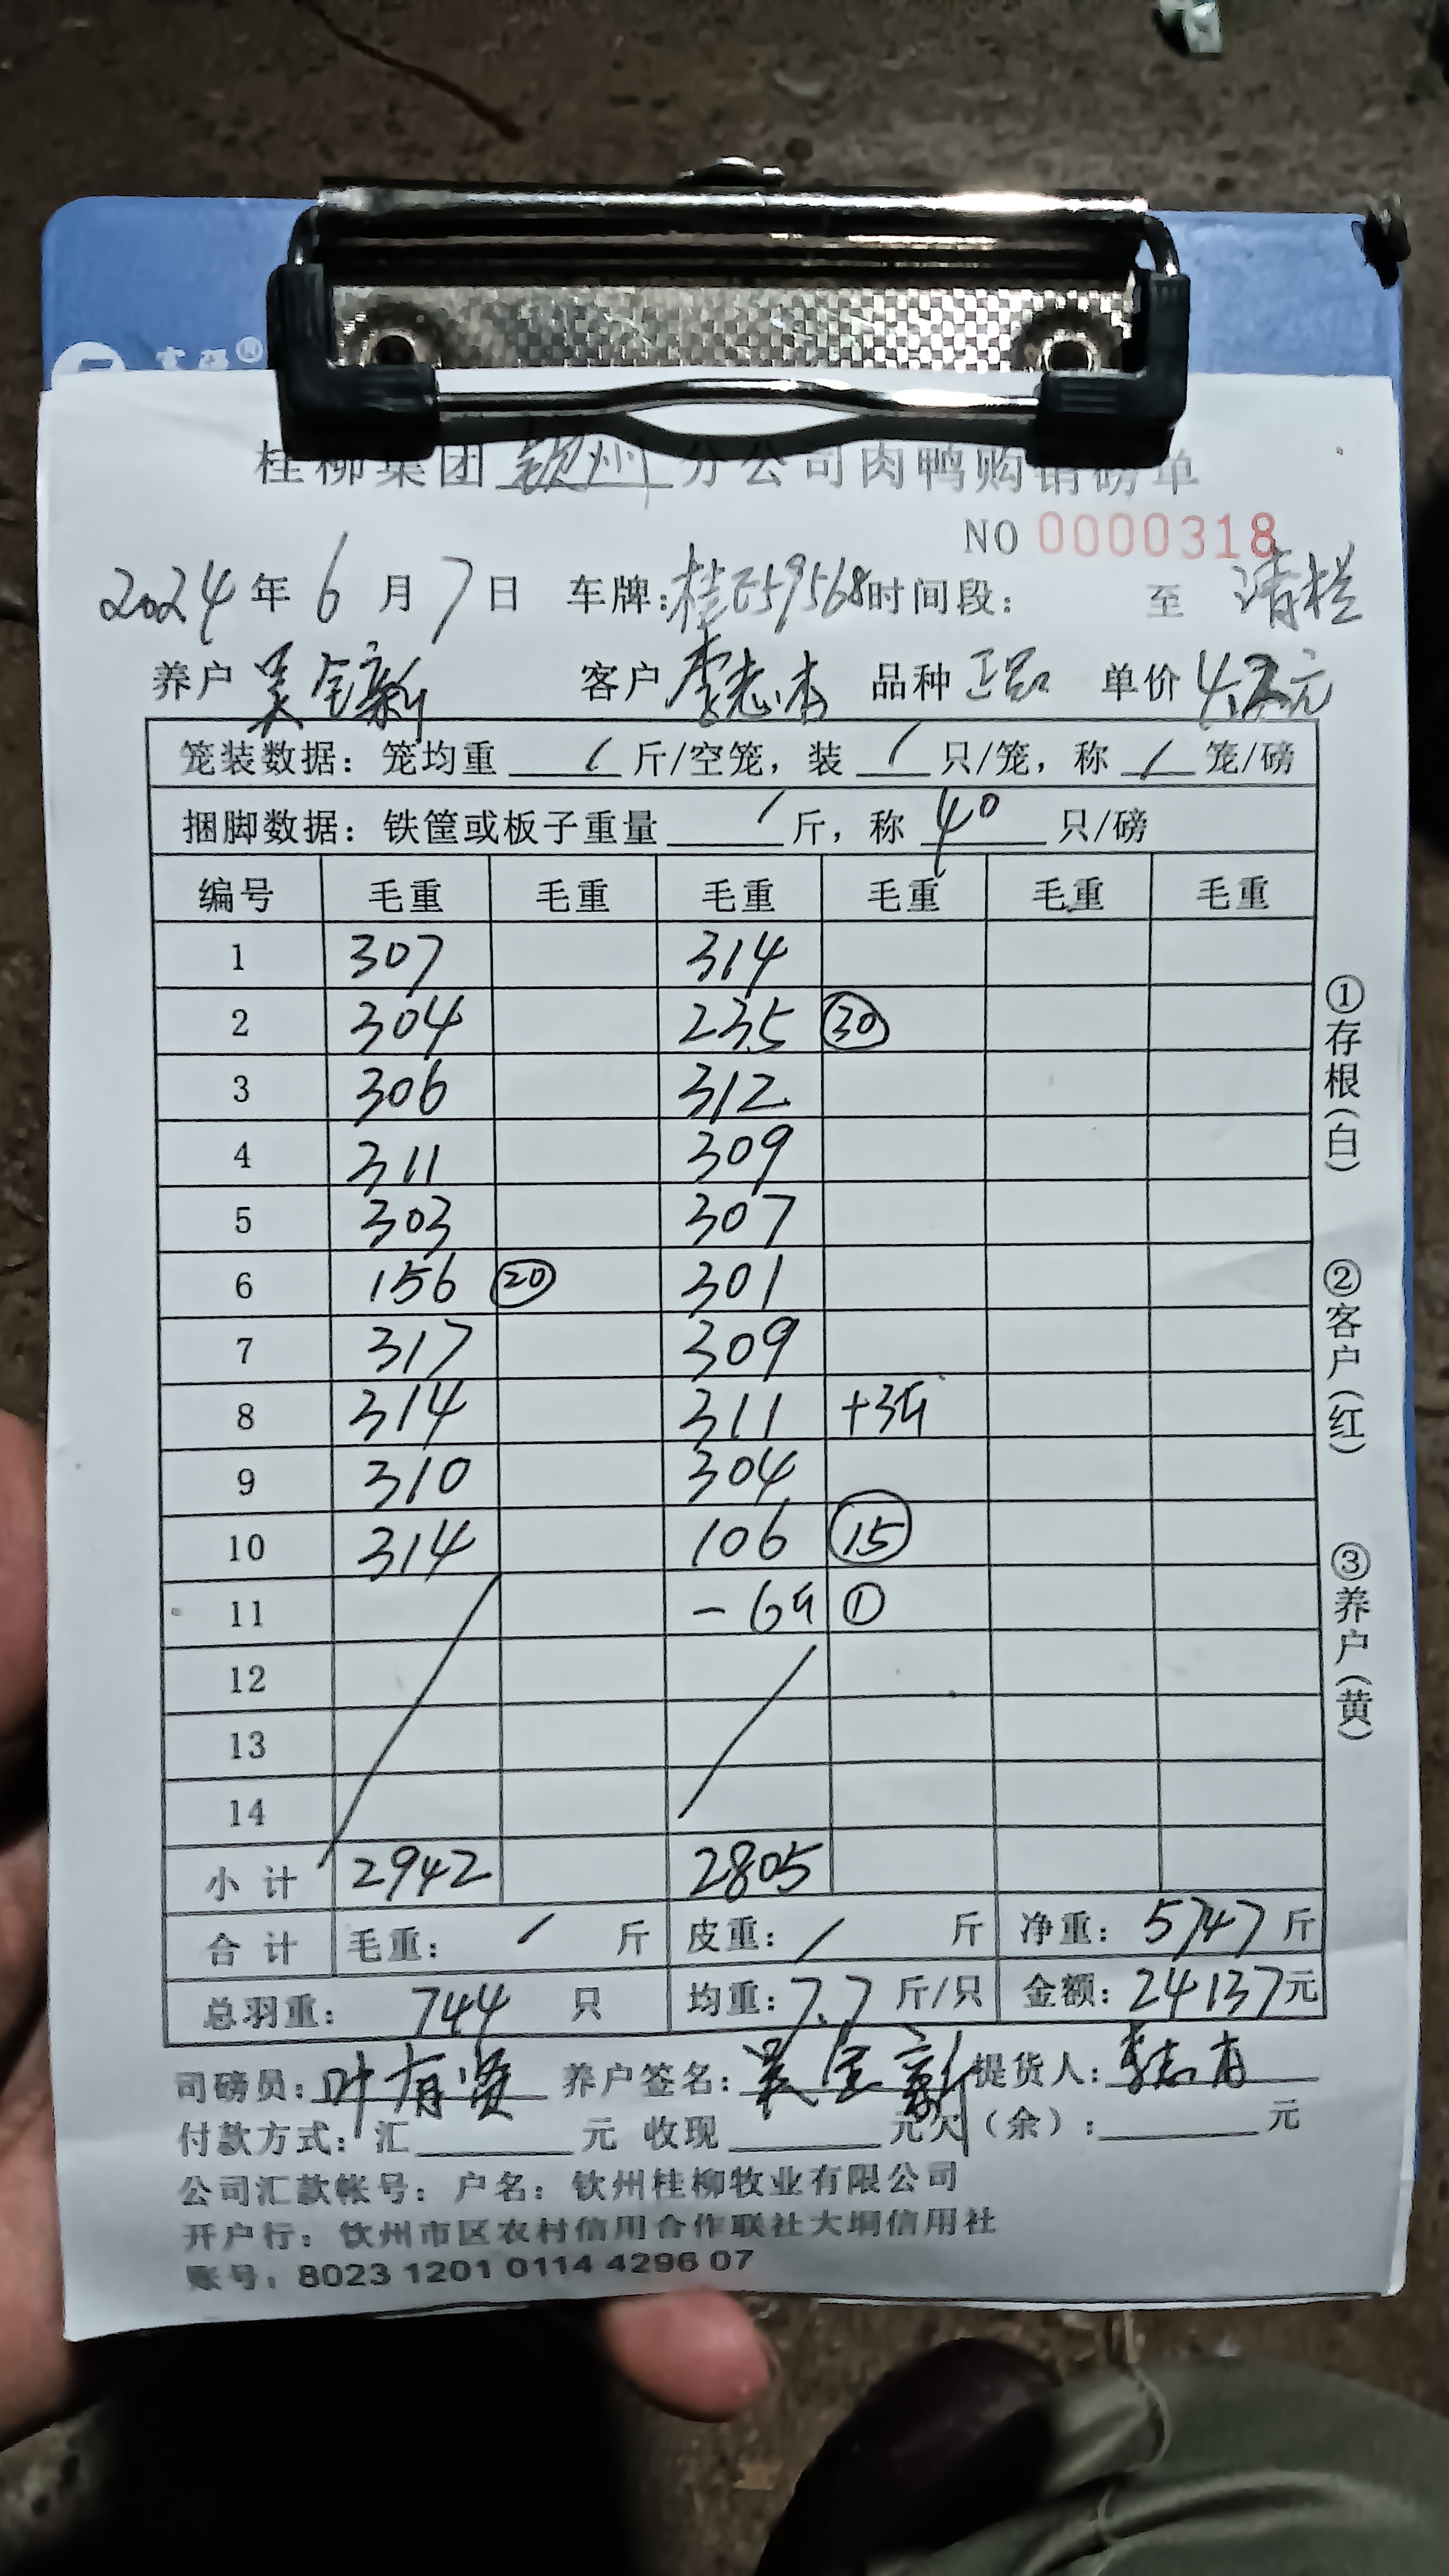 桂柳集团 钦州 分公司肉鸭购销磅单
NO 0000318
2024 年 6 月 7 日 车牌:桂E59568 时间段: 至 清栏
养户 吴全新 客户 李志 品种 正品 单价 4.2元
笼装数据: 笼均重 / 斤/空笼, 装 / 只/笼, 称 / 笼/磅
捆脚数据: 铁筐或板子重量 / 斤, 称 40 只/磅
编号 毛重 毛重 毛重 毛重 毛重 毛重
1 307 314
2 304 235 30
3 306 312
4 311 309
5 303 307
6 156 20 301
7 317 309
8 314 311 +3斤
9 310 304
10 314 106 15
11 -6斤 ①
12
13
14
小计 2942 2805
合计 毛重: / 斤 皮重: / 斤 净重: 5747 斤
总羽重: 744 只 均重: 7.7 斤/只 金额: 24137元
司磅员: 叶有贤 养户签名: 吴全新 提货人: 李志
付款方式: 汇 元 收现 元欠(余): 元
公司汇款帐号: 户名: 钦州桂柳牧业有限公司
开户行: 钦州市区农村信用合作联社大垌信用社
账号: 8023 1201 0114 4296 07
①存根(白)
②客户(红)
③养户(黄)